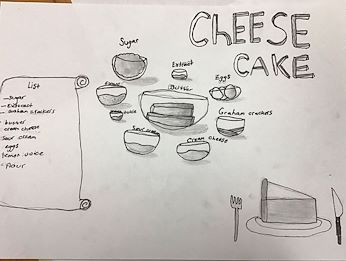 CHEESE
CAKE
Sugar
Extract
Eggs
Flour
Butter
Graham crackers
juice
Sour cream
Cream cheese
List
- Sugar
- Extract
- Graham crackers
- butter
- cream cheese
- Sour cream
- eggs
- lemon juice
- flour